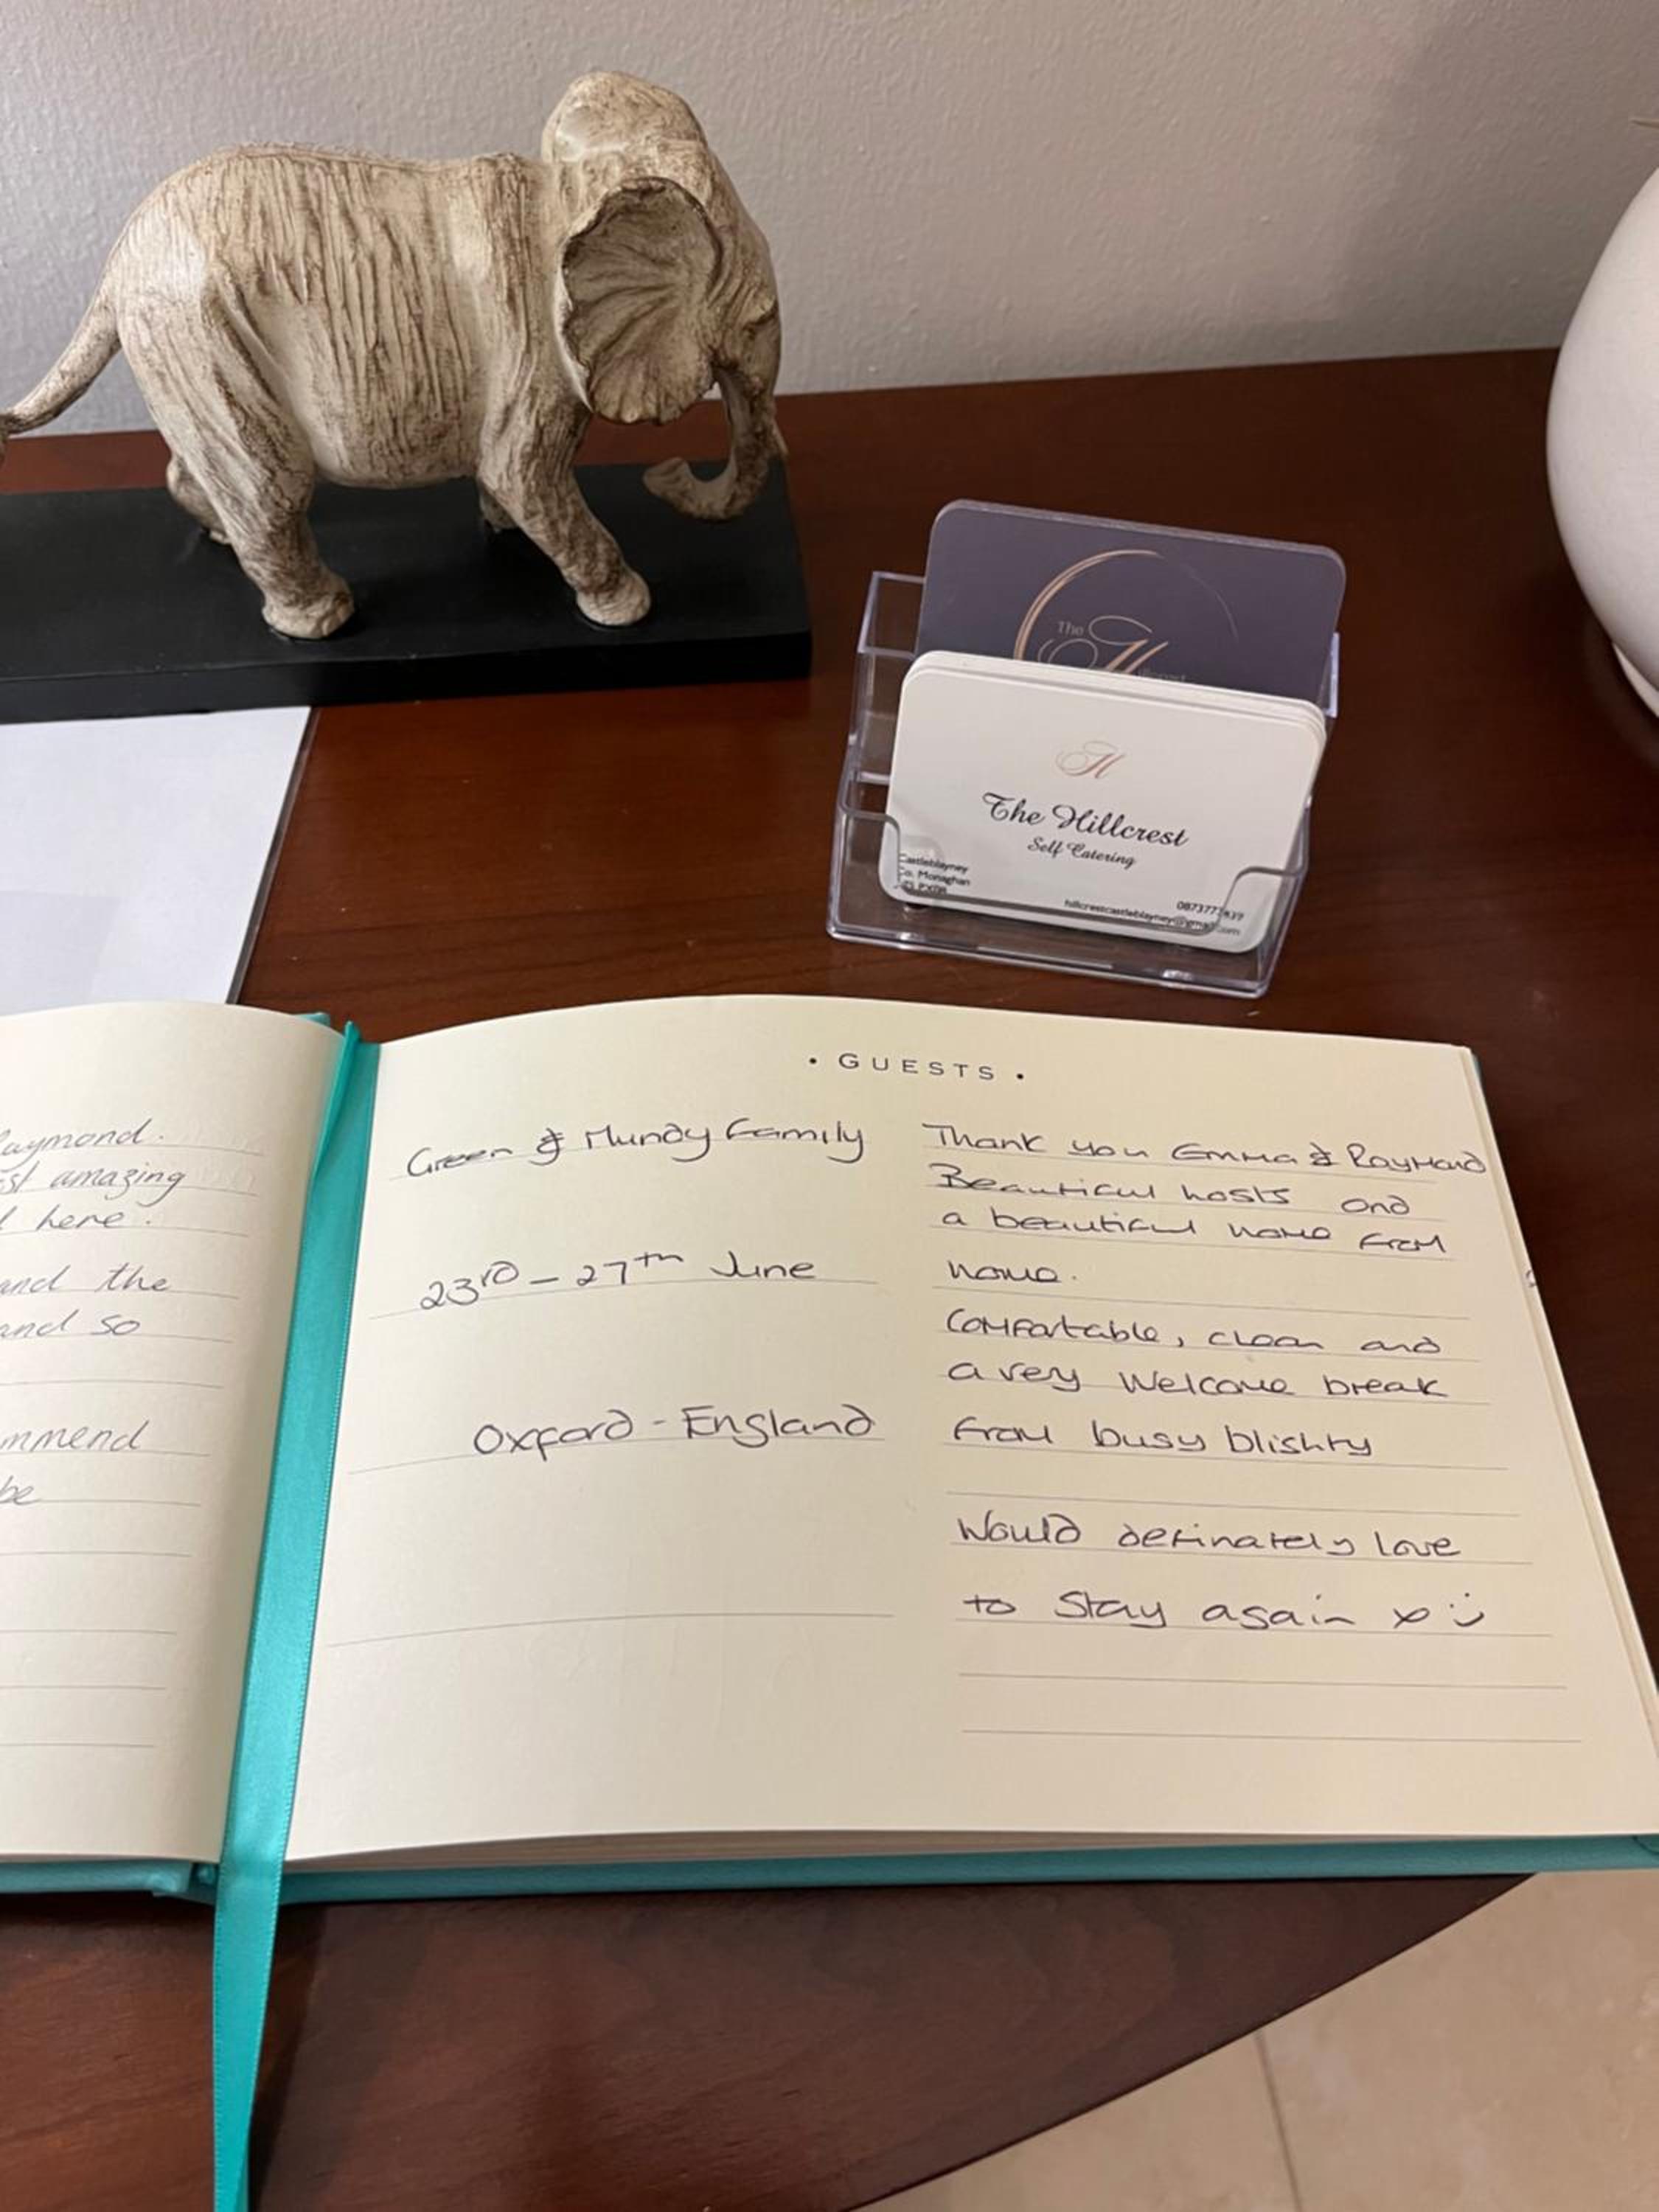 The
H
The Hillcrest
Self Catering
Castleblayney
Co. Monaghan
hillcrestcastleblayney@gmail.com
• GUESTS •
aymond.
st amazing
l here.
and the
and so
mmend
be
Green & Mundy Family
23rd - 27th June
Oxford - England
Thank you Emma & Raymond
Beautiful hosts and
a beautiful home from
home.
Comfortable, clean and
a very welcome break
from busy blishty
Would definately love
to stay again x :)